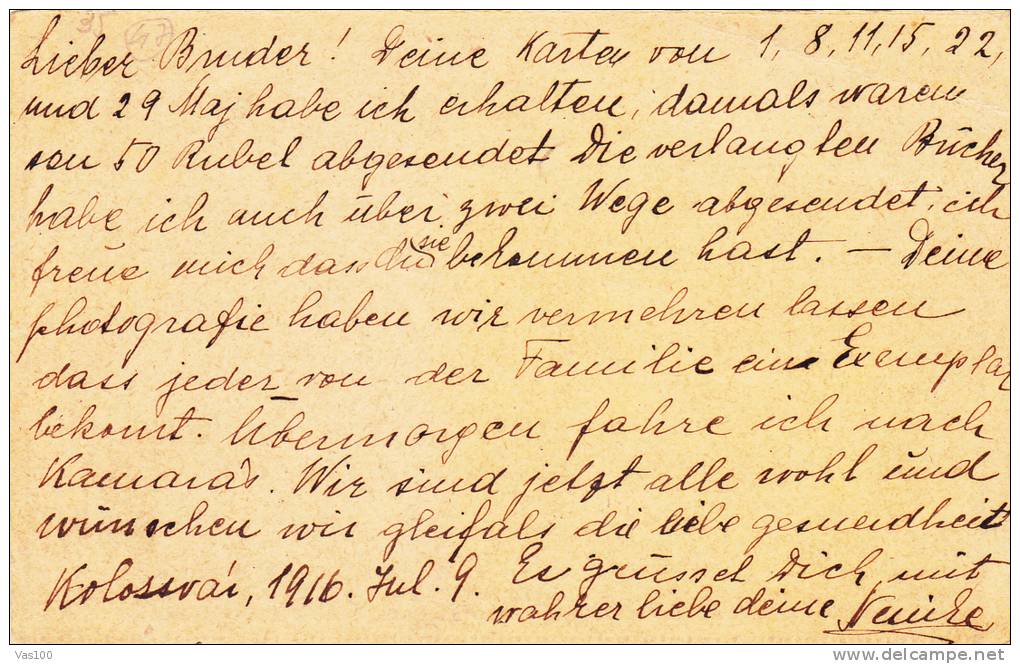 35 47
Lieber Bruder! Deine Karten von 1, 8, 11, 15, 22,
und 29 Maj habe ich erhalten, damals waren
son 50 Rubel abgesendet Die verlangten Bücher
habe ich auch über zwei Wege abgesendet, ich
freue mich dass du sie bekommen hast. — Deine
photografie haben wir vermehren lassen
dass jeder von der Familie ein Exemplar
bekomt. Übermorgen fahre ich nach
Kamarás. Wir sind jetzt alle wohl und
wünschen wir gleifals die liebe gesundheit
Kolossvár, 1916. Jul. 9. Es grüsset Dich mit
wahrer liebe deine
Vas100
delcampe.net